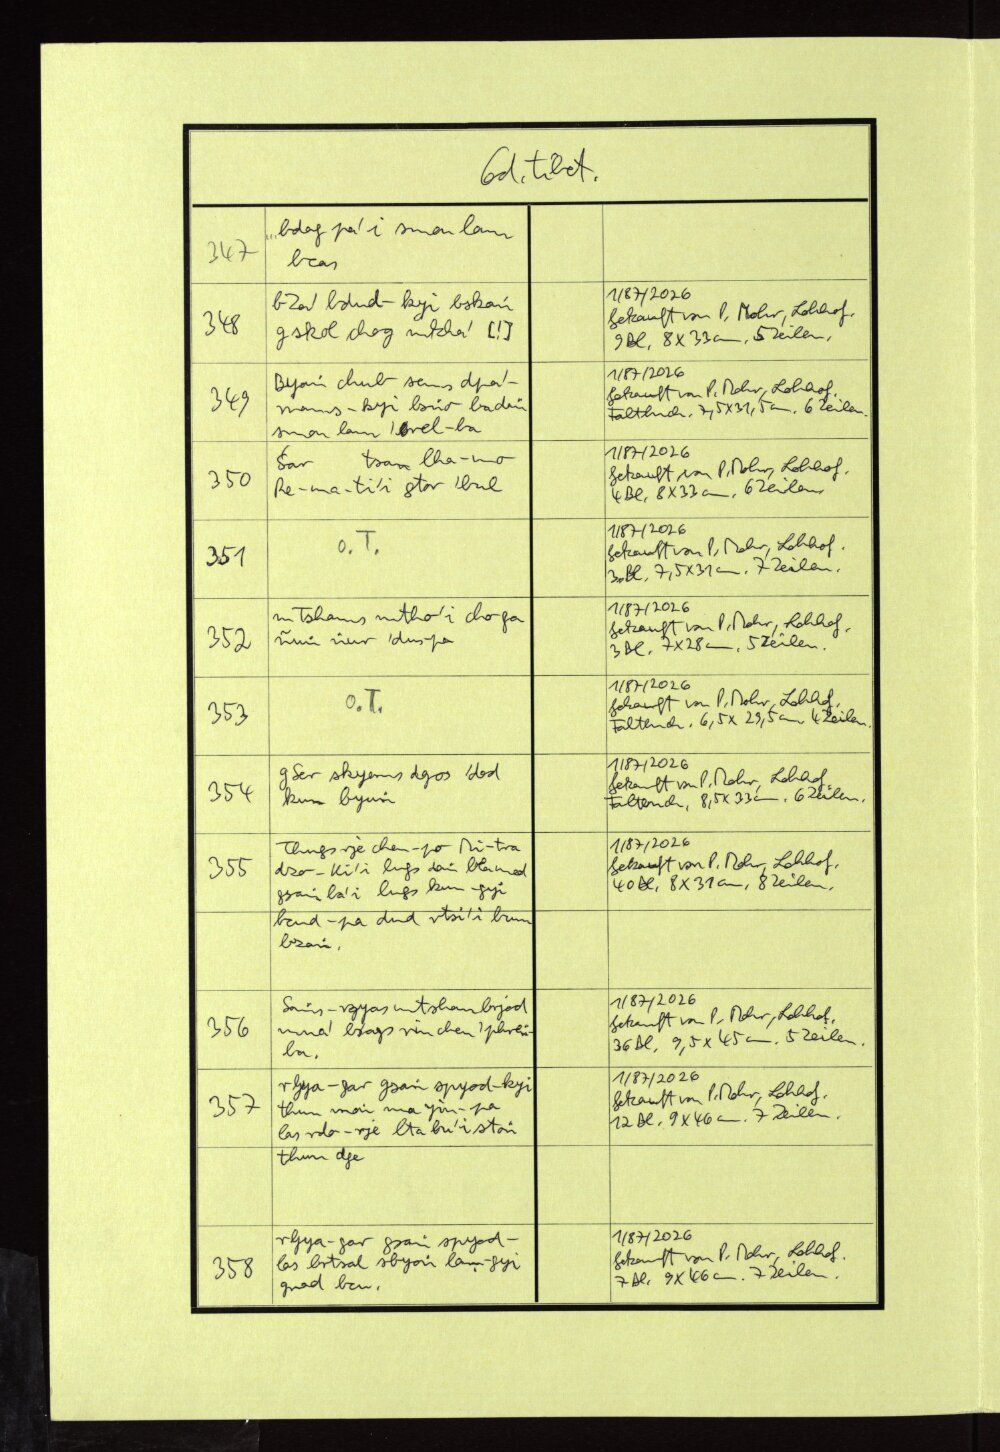 Cod. tibet.
347
... bdag pa'i smon lam
bcas
348
bza' bdud-kyi bskań
gskol chog mtkha' [!]
1/87/2026
Gekauft von P. Mohr, Lohhof.
9 Bl. 8 x 33 cm. 5 Zeilen.
349
Byań chub sems dpa'-
rnams-kyi
smon lam 'brel-ba
1/87/2026
Gekauft von P. Mohr, Lohhof.
Faltbuch. 7,5 x 31,5 cm. 6 Zeilen.
350
Śar lha-mo
Re-ma-ti'i gtor 'bul
1/87/2026
Gekauft von P. Mohr, Lohhof.
4 Bl. 8 x 33 cm. 6 Zeilen.
351
o.T.
1/87/2026
Gekauft von P. Mohr, Lohhof.
3 Bl. 7,5 x 31 cm. 7 Zeilen.
352
mtshams mtho'i cho ga
ñuń ńur 'dus-pa
1/87/2026
Gekauft von P. Mohr, Lohhof.
3 Bl. 7 x 28 cm. 5 Zeilen.
353
o.T.
1/87/2026
Gekauft von P. Mohr, Lohhof.
Faltbuch. 6,5 x 29,5 cm 4 Zeilen.
354
gSer skyems dgos 'dod
kun byuń
1/87/2026
Gekauft von P. Mohr, Lohhof.
Faltbuch. 8,5 x 33 cm. 6 Zeilen.
355
Thugs rje chen-po Mi-tra
dzo-ki'i lugs dań bla med
gsań ba'i lugs kun-gyi
bcud-pa dud rtsi'i bum
bzań.
1/87/2026
Gekauft von P. Mohr, Lohhof.
40 Bl. 8 x 31 cm. 8 Zeilen.
356
Sańs-rgyas mtshan brjod
mna' bsags rin chen 'phreń-
ba.
1/87/2026
Gekauft von P. Mohr, Lohhof.
36 Bl. 9,5 x 45 cm. 5 Zeilen.
357
rGya-gar gsań spyod-kyi
thun moń ma yin-pa
las rdo-rje lta bu'i stoń
thun dge
1/87/2026
Gekauft von P. Mohr, Lohhof.
12 Bl. 9 x 46 cm. 7 Zeilen.
358
rGya-gar gsań spyod-
las brtsal sbyoń lam-gyi
gnad bcu.
1/87/2026
Gekauft von P. Mohr, Lohhof.
7 Bl. 9 x 46 cm. 7 Zeilen.